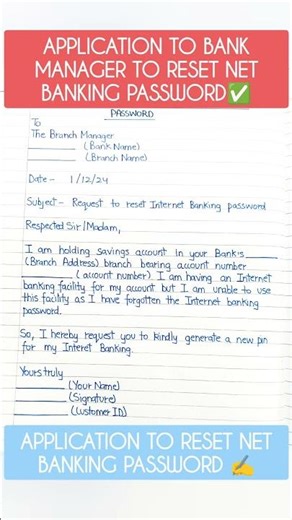 APPLICATION TO BANK
MANAGER TO RESET NET
BANKING PASSWORD✅
PASSWORD
To
The Branch Manager
________ (Bank Name)
________ (Branch Name)
Date - 1/12/24
Subject - Request to reset Internet Banking password
Respected Sir/Madam,
I am holding savings account in your Bank's ______
(Branch Address) branch bearing account number
________ (account number). I am having an Internet
banking facility for my account but I am unable to use
this facility as I have forgotten the Internet banking
password.
So, I hereby request you to kindly generate a new pin
for my Interet Banking.
Yours truly
________ (Your Name)
________ (Signature)
________ (Customer ID)
APPLICATION TO RESET NET
BANKING PASSWORD ✍️